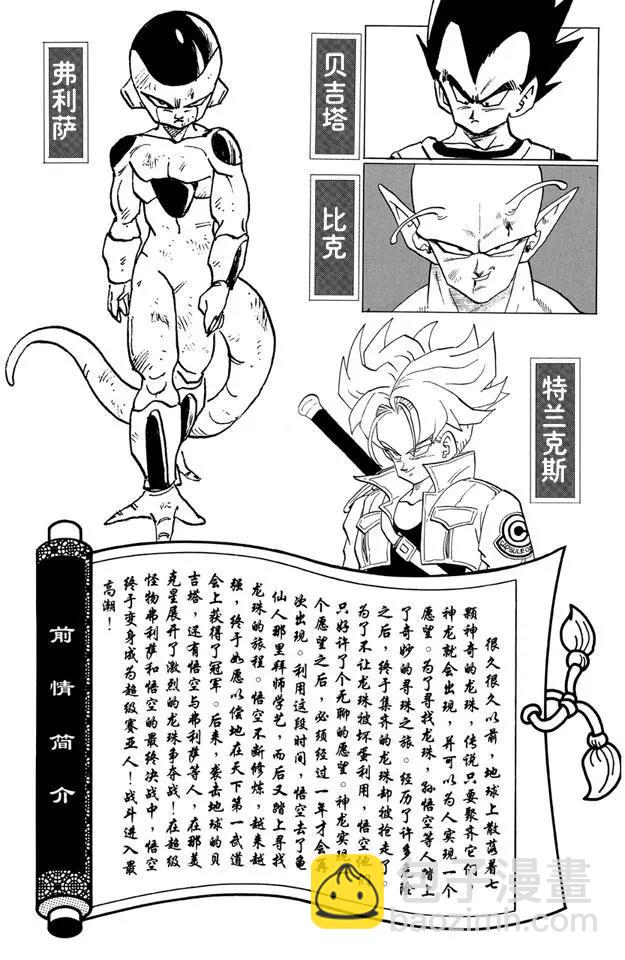 弗利萨
贝吉塔
比克
特兰克斯
CAPSULE CORP
前情简介
很久很久以前，地球上散落着七
颗神奇的龙珠，传说只要聚齐它们
神龙就会出现，并可以为人实现一个
愿望。为了寻找龙珠，孙悟空等人踏上
了奇妙的寻珠之旅。经历了许多冒险
之后，终于集齐的龙珠却被抢走了。
为了不让龙珠被坏蛋利用，悟空他们
只好许了个无聊的愿望。神龙实现
个愿望之后，必须经过一年才会再
次出现。利用这段时间，悟空去了龟
仙人那里拜师学艺，而后又踏上寻找
龙珠的旅程。悟空不断修炼，越来越
强，终于如愿以偿地在天下第一武道
会上获得了冠军。后来，袭击地球的贝
吉塔，还有悟空与弗利萨等人，在那美
克星展开了激烈的龙珠争夺战！在超级
怪物弗利萨和悟空的最终决战中，悟空
终于变身成为超级赛亚人！战斗进入最
高潮！
包子漫畫
baozimh.com